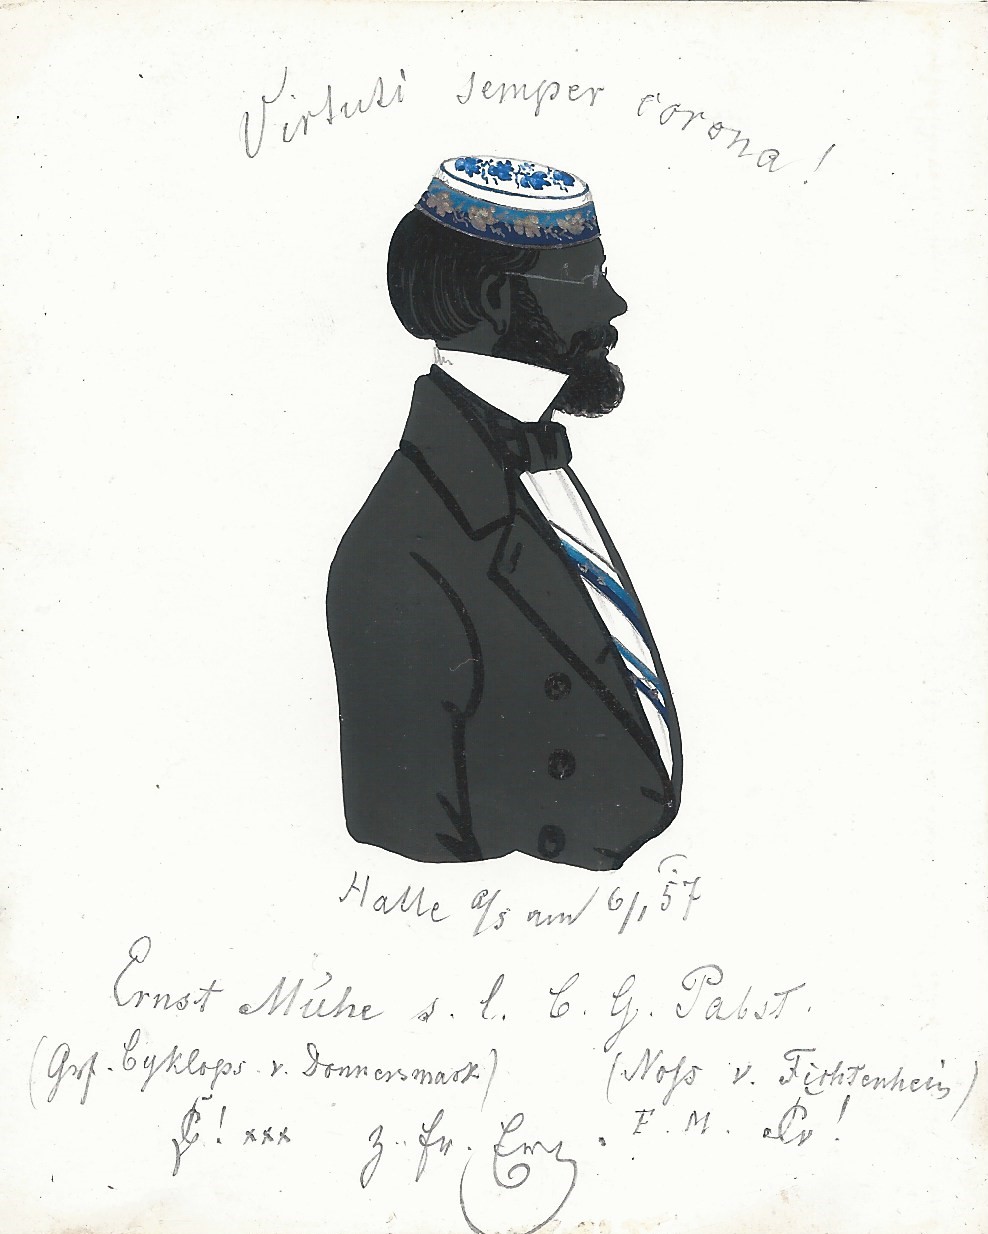 Virtuti semper corona!
Halle a/s am 6/1 57
Ernst Mühe s. l. C. G. Pabst.
(Grf. Cyklops v. Donnersmark) (Noſs v. Fichtenhein)
! xxx z. fr. F. M. !